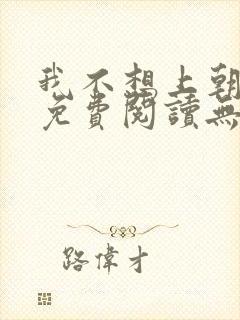 我不想上朝
免費閱讀無
路偉才